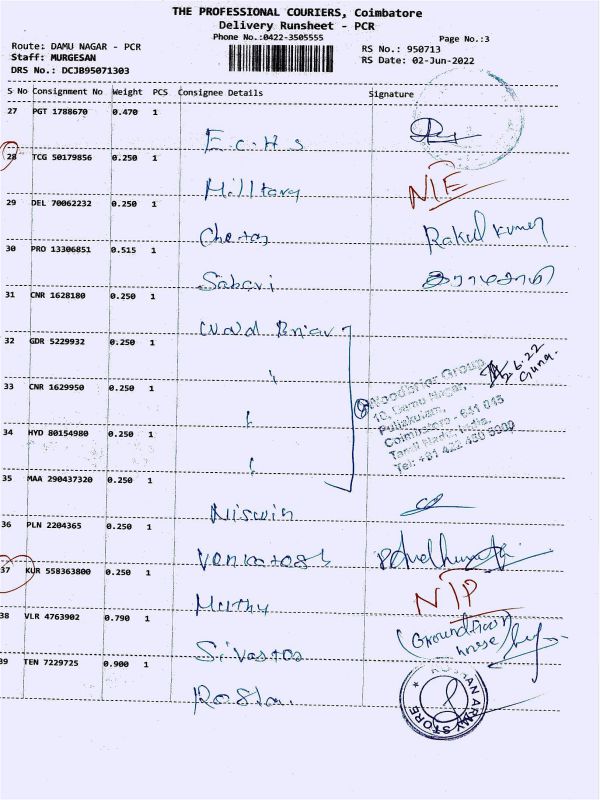 THE PROFESSIONAL COURIERS, Coimbatore
Delivery Runsheet - PCR
Phone No.:0422-3505555
Page No.:3
Route: DAMU NAGAR - PCR
RS No.: 950713
Staff: MURGESAN
RS Date: 02-Jun-2022
DRS No.: DCJB95071303
S No Consignment No Weight PCS Consignee Details Signature
27 PGT 1788670 0.470 1
E.C.H.S
28 TCG 50179856 0.250 1
Military N/E
29 DEL 70062232 0.250 1
Rakul Kumar
30 PRO 13306851 0.515 1
Sabari
31 CNR 1628180 0.250 1
32 GDR 5229932 0.250 1
2.6.22
Guna.
33 CNR 1629950 0.250 1
Woodbriar Group
10, Damu Nagar,
Pulliakulam,
Coimbatore - 641 045
Tamil Nadu, India.
34 HYD 80154980 0.250 1
35 MAA 290437320 0.250 1
Niswin
36 PLN 2204365 0.250 1
Venkatesh
37 KUR 558363800 0.250 1
Muthy N/P
38 VLR 4763902 0.790 1
(Groundfloor
house)
39 TEN 7229725 0.900 1
ARMY STORE